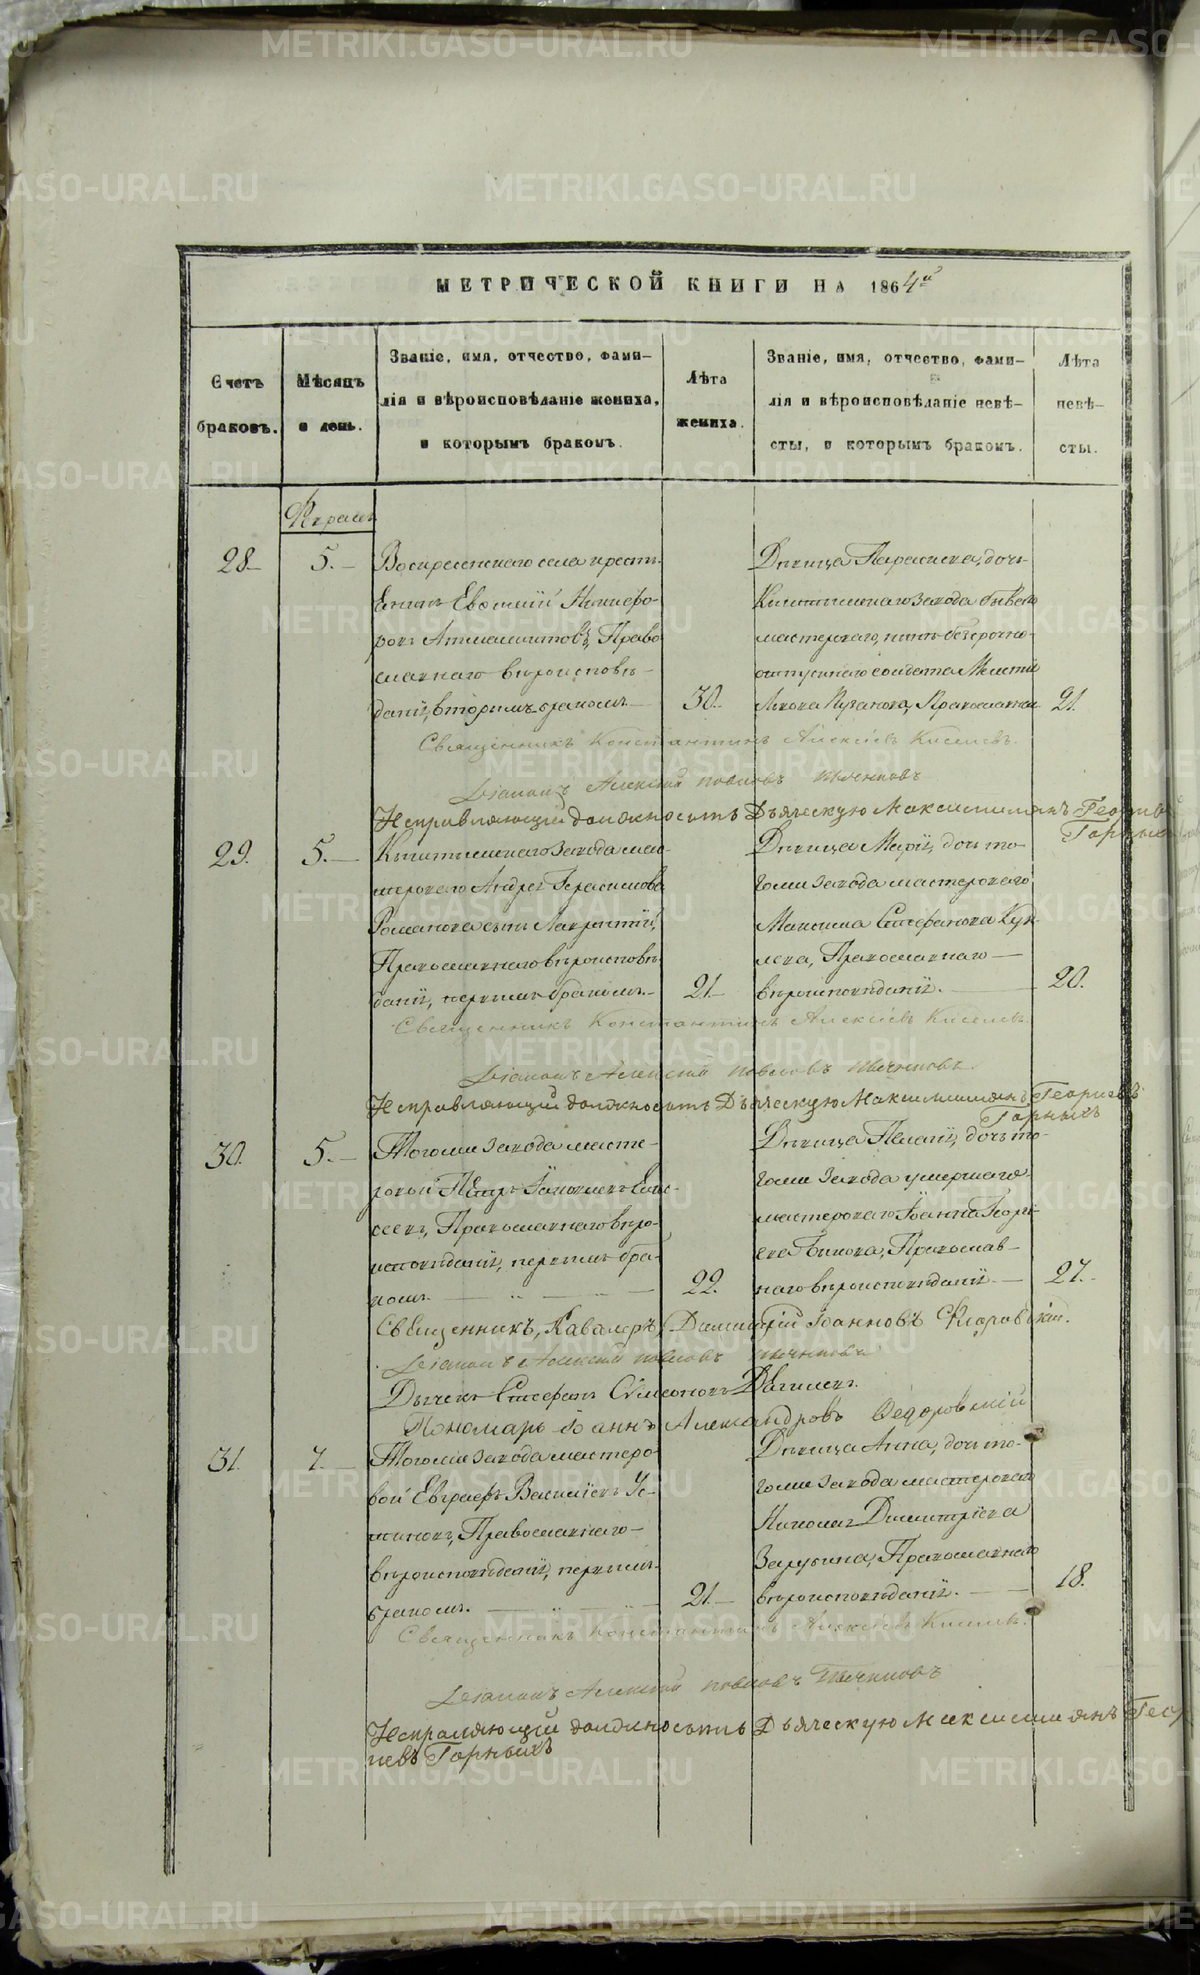 МЕТРИЧЕСКОЙ КНИГИ НА 1864й
Счетъ браковъ.
Мѣсяцъ и день.
Званіе, имя, отчество, фами-
лія и вѣроисповѣданіе жениха,
и которымъ бракомъ.
Лѣта жениха.
Званіе, имя, отчество, фами-
лія и вѣроисповѣданіе невѣ-
сты, и которымъ бракомъ.
Лѣта невѣ-
сты.
28.
5.
Воскресенскаго села кресть-
Евѳимій Никифо-
ровъ Право
славнаго вѣроисповѣ-
данія, вторымъ бракомъ.
30.
Дѣвица Параскева, дочь
Кыштымскаго Завода бывшаго
мастероваго, нынѣ безсрочно-
отпускнаго солдата
Православнаго
21.
Священникъ Константинъ Алексѣевъ Киселевъ.
Діаконъ Алексій Павловъ
Исправляющій должность Дьяческую Максимиліанъ Георгіевъ
Горныхъ
29.
5.
Кыштымскаго Завода мас-
тероваго Андрея Герасимова
Романова сынъ Лаврентій,
Православнаго вѣроисповѣ-
данія, первымъ бракомъ.
21.
Дѣвица Марія, дочь то-
гоже Завода мастероваго
Максима Стефанова
Православнаго
вѣроисповѣданія.
20.
Священникъ Константинъ Алексѣевъ Киселевъ
Діаконъ Алексій Павловъ
Исправляющій должность Дьяческую Максимиліанъ Георгіевъ
Горныхъ
30.
5.
Тогоже Завода масте-
ровой Петръ Іаковлевъ Ели-
сеевъ, Православнаго вѣро-
исповѣданія, первымъ бра-
комъ.
22.
Дѣвица Пелагія, дочь то-
гоже Завода умершаго
мастероваго Іоанна Георгі-
ева Православ-
наго вѣроисповѣданія.
27.
Священникъ, Кавалеръ Димитрій Іоанновъ Флоровскій.
Діаконъ Алексій Павловъ
Дьячекъ Стефанъ Сѵмеоновъ
Пономарь Іоаннъ Александровъ Ѳедоровскій
31.
7.
Тогоже Завода мастеро-
вой Евграфъ Василіевъ Ус-
тиновъ, Православнаго
вѣроисповѣданія, первымъ
бракомъ.
21.
Дѣвица Анна, дочь то-
гоже Завода мастероваго
Николая Димитріева
Зарубина, Православнаго
вѣроисповѣданія.
18.
Священникъ Константинъ Алексѣевъ Киселевъ.
Діаконъ Алексій Павловъ
Исправляющій должность Дьяческую Максимиліанъ Геор
гіевъ Горныхъ
METRIKI.GASO-URAL.RU